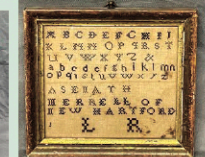 A B C D E F G H I J
K L M N O P Q R S T
U V W X Y Z &
a b c d e f g h i k l m n
o p q r s t u v w x y z
HERRELL OF
NEW HARTFORD
L R